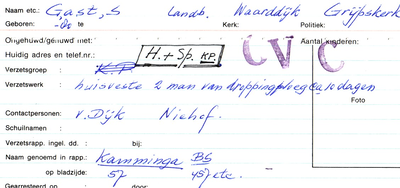 Naam etc.: Gast, S Landb. Waarddijk Grijpskerk
Geboren: te Kerk: Politiek:
Ongehuwd/gehuwd met: Aantal kinderen:
Huidig adres en telef.nr.: H. + Sp. KP. CVC
Verzetsgroep : K.P.
Verzetswerk : huisveste 2 man van droppingploeg ca. 10 dagen
Foto
Contactpersonen: v. Dijk Niehof.
Schuilnamen :
Verzetsrapp. ingel. dd. : bij:
Naam genoemd in rapp.: Kamminga BS
op bladzijde: 57 457 etc.
Gearresteerd op : door: